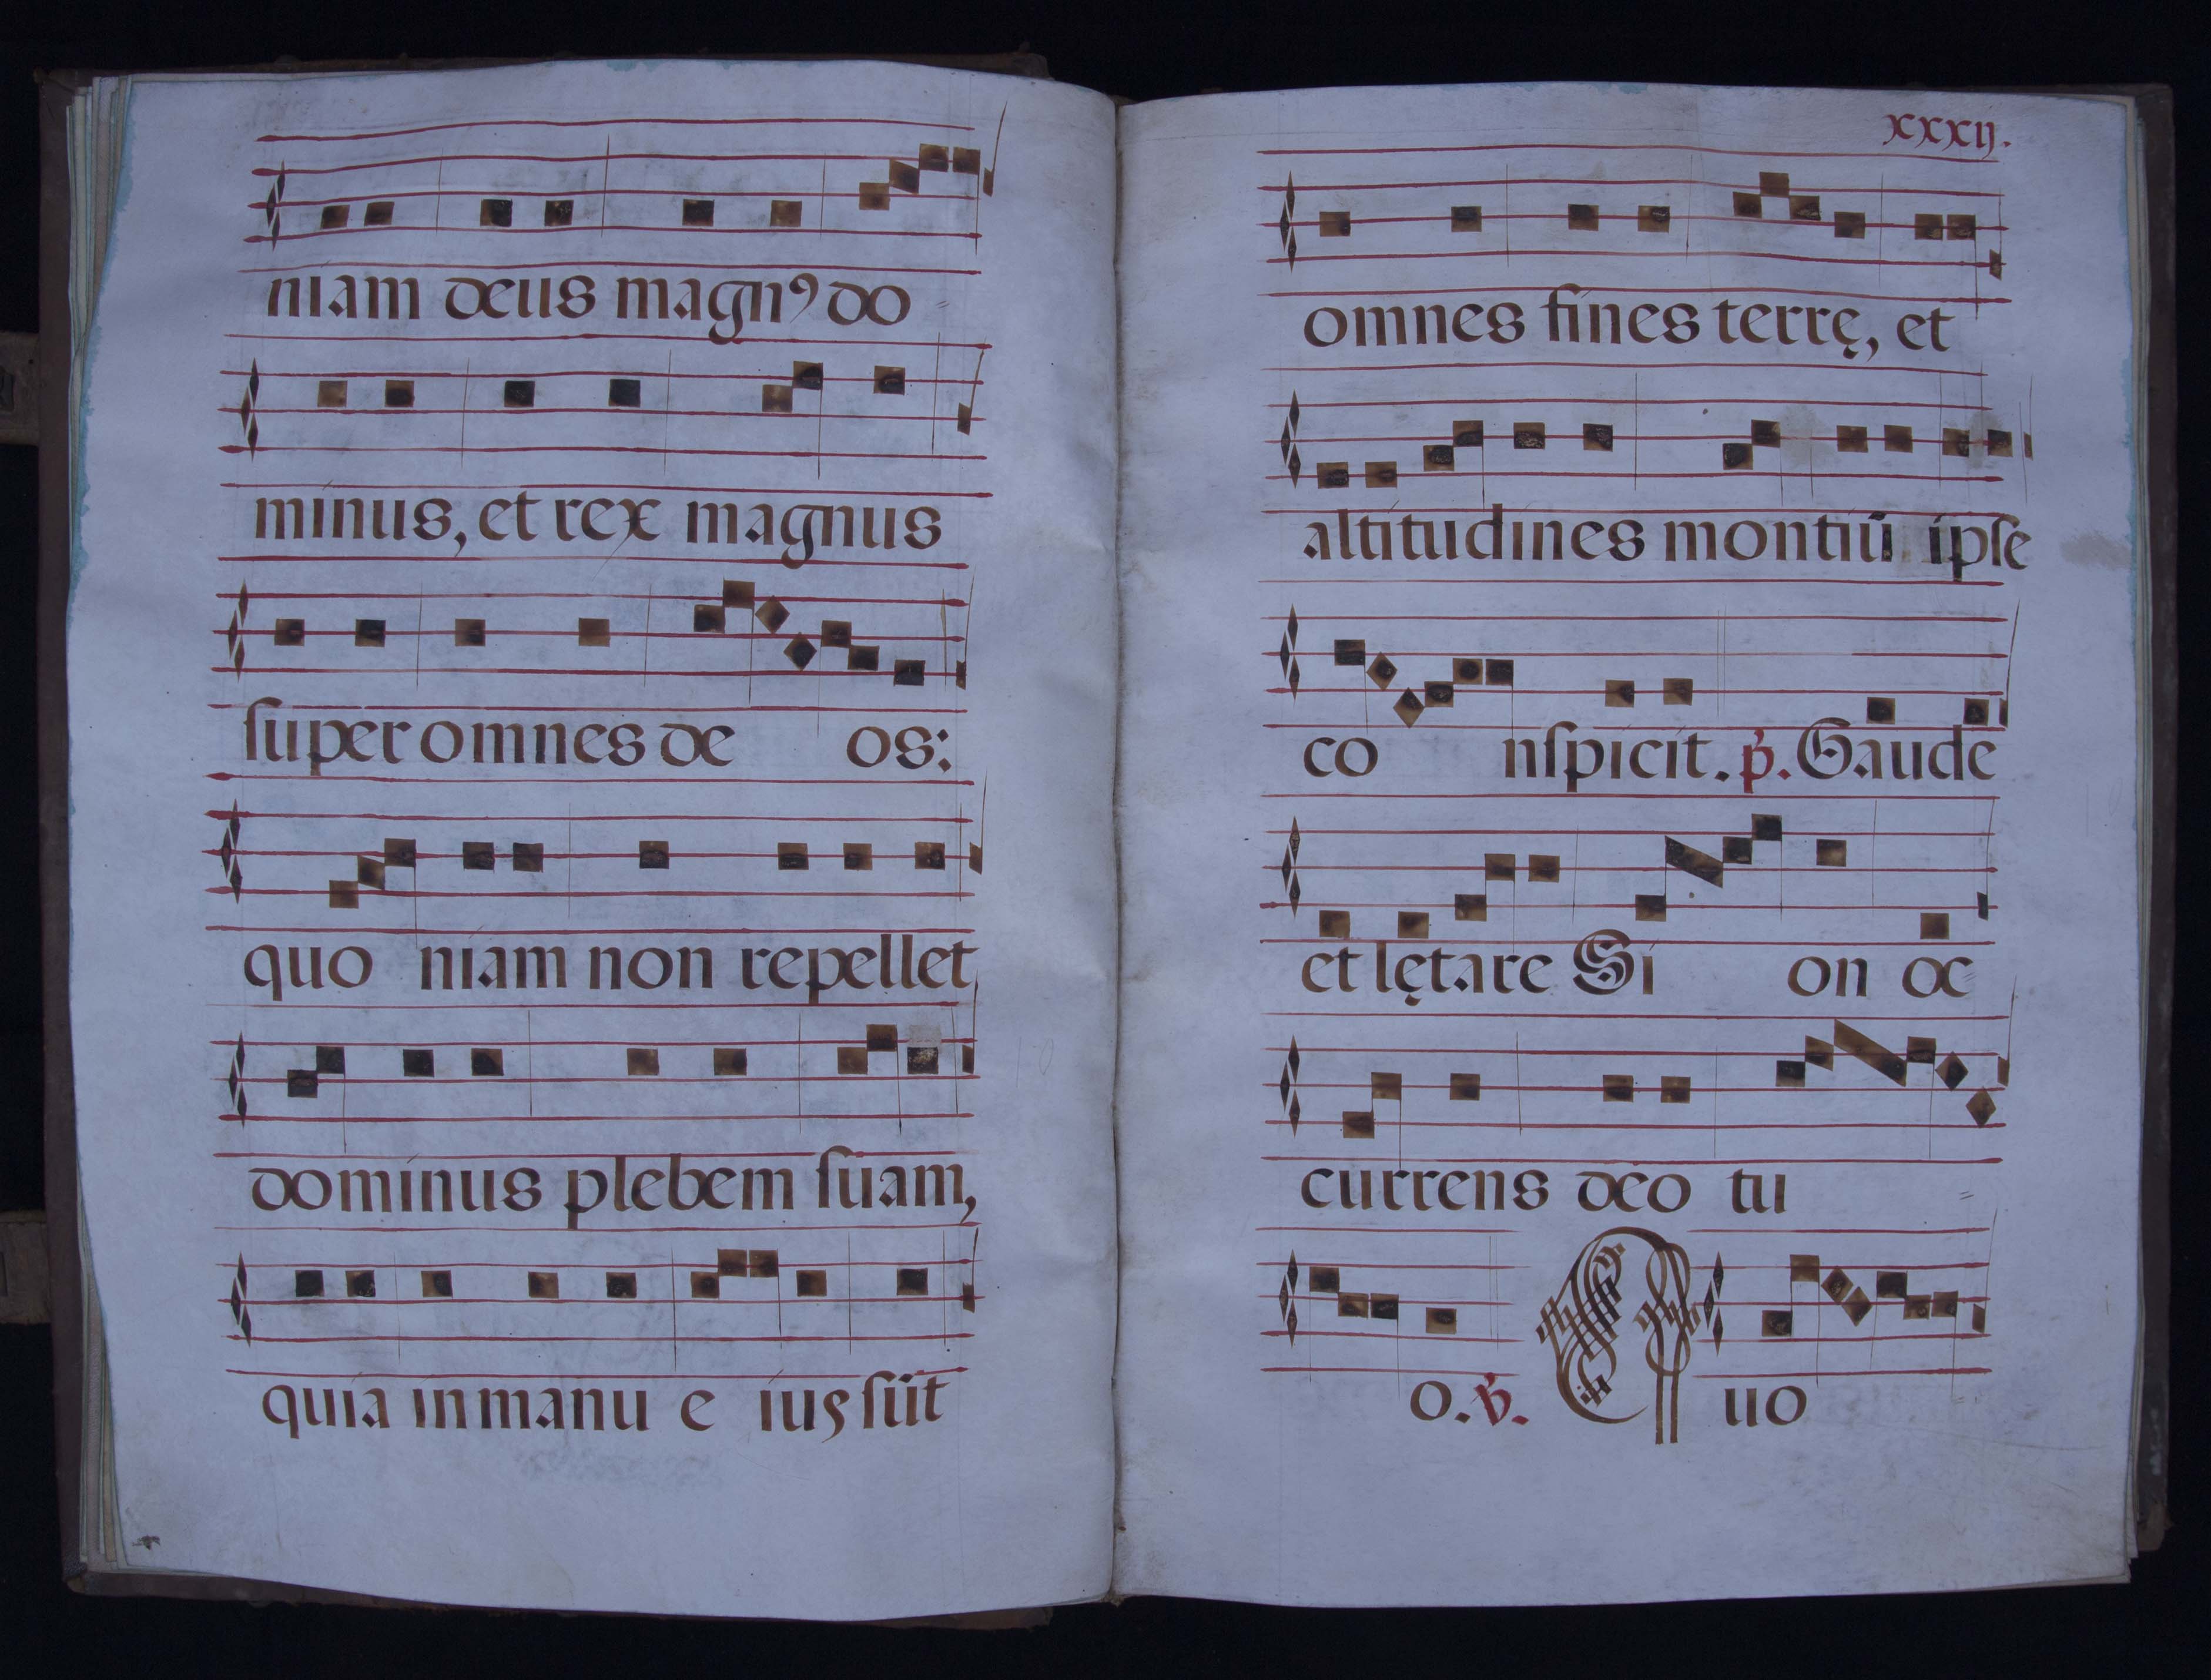 niam deus magnꝰ do=
minus, et rex magnus
ſuper omnes de os:
quo niam non repellet
dominus plebem ſuam,
quia in manu e ius ſūt
xxxij.
omnes fines terrę, et
altitudines montiū ipſe
co nſpicit. p̃. Gaude
et lętare Sion oc=
currens deo tu =
o. ṽ. Quo